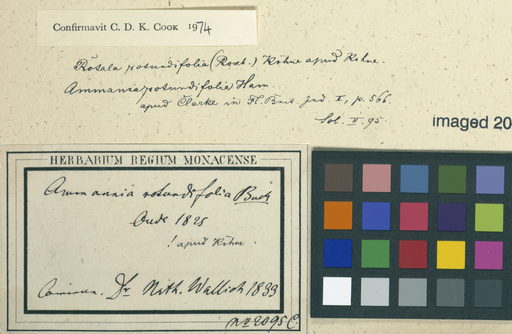 Confirmavit C. D. K. Cook 1974
Rotala rotundifolia (Roxb.) Köhne apud Kehne.
Ammania rotundifolia Ham.
apud Clarke in Fl. Brit. Ind. II, p. 566.
Sol. II 95
imaged 20
HERBARIUM REGIUM MONACENSE
Ammannia rotundifolia Buch
Oude 1825
! apud Köhne.
Commun. Dr Nath. Wallich 1833
No 2095 C.